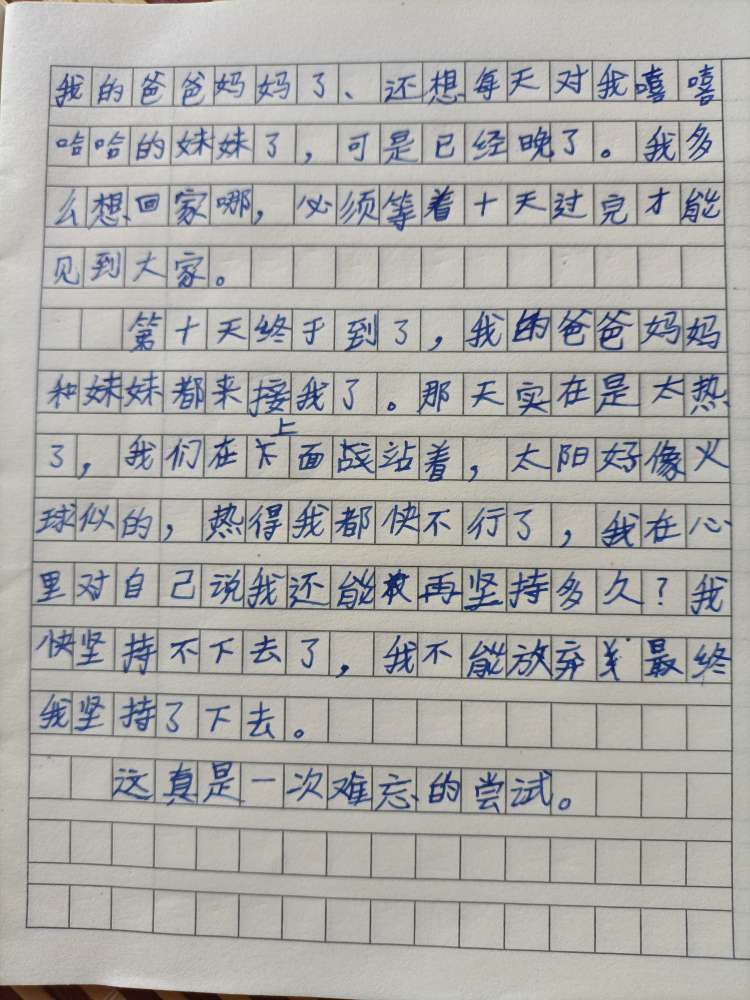 我的爸爸妈妈了、还想每天对我嘻嘻
哈哈的妹妹了，可是已经晚了。我多
么想回家哪，必须等着十天过完才能
见到大家。
第十天终于到了，我的爸爸妈妈
和妹妹都来接我了。那天实在是太热
了，我们在上面站着，太阳好像火
球似的，热得我都快不行了，我在心
里对自己说我还能再坚持多久？我
快坚持不下去了，我不能放弃最终
我坚持了下去。
这真是一次难忘的尝试。